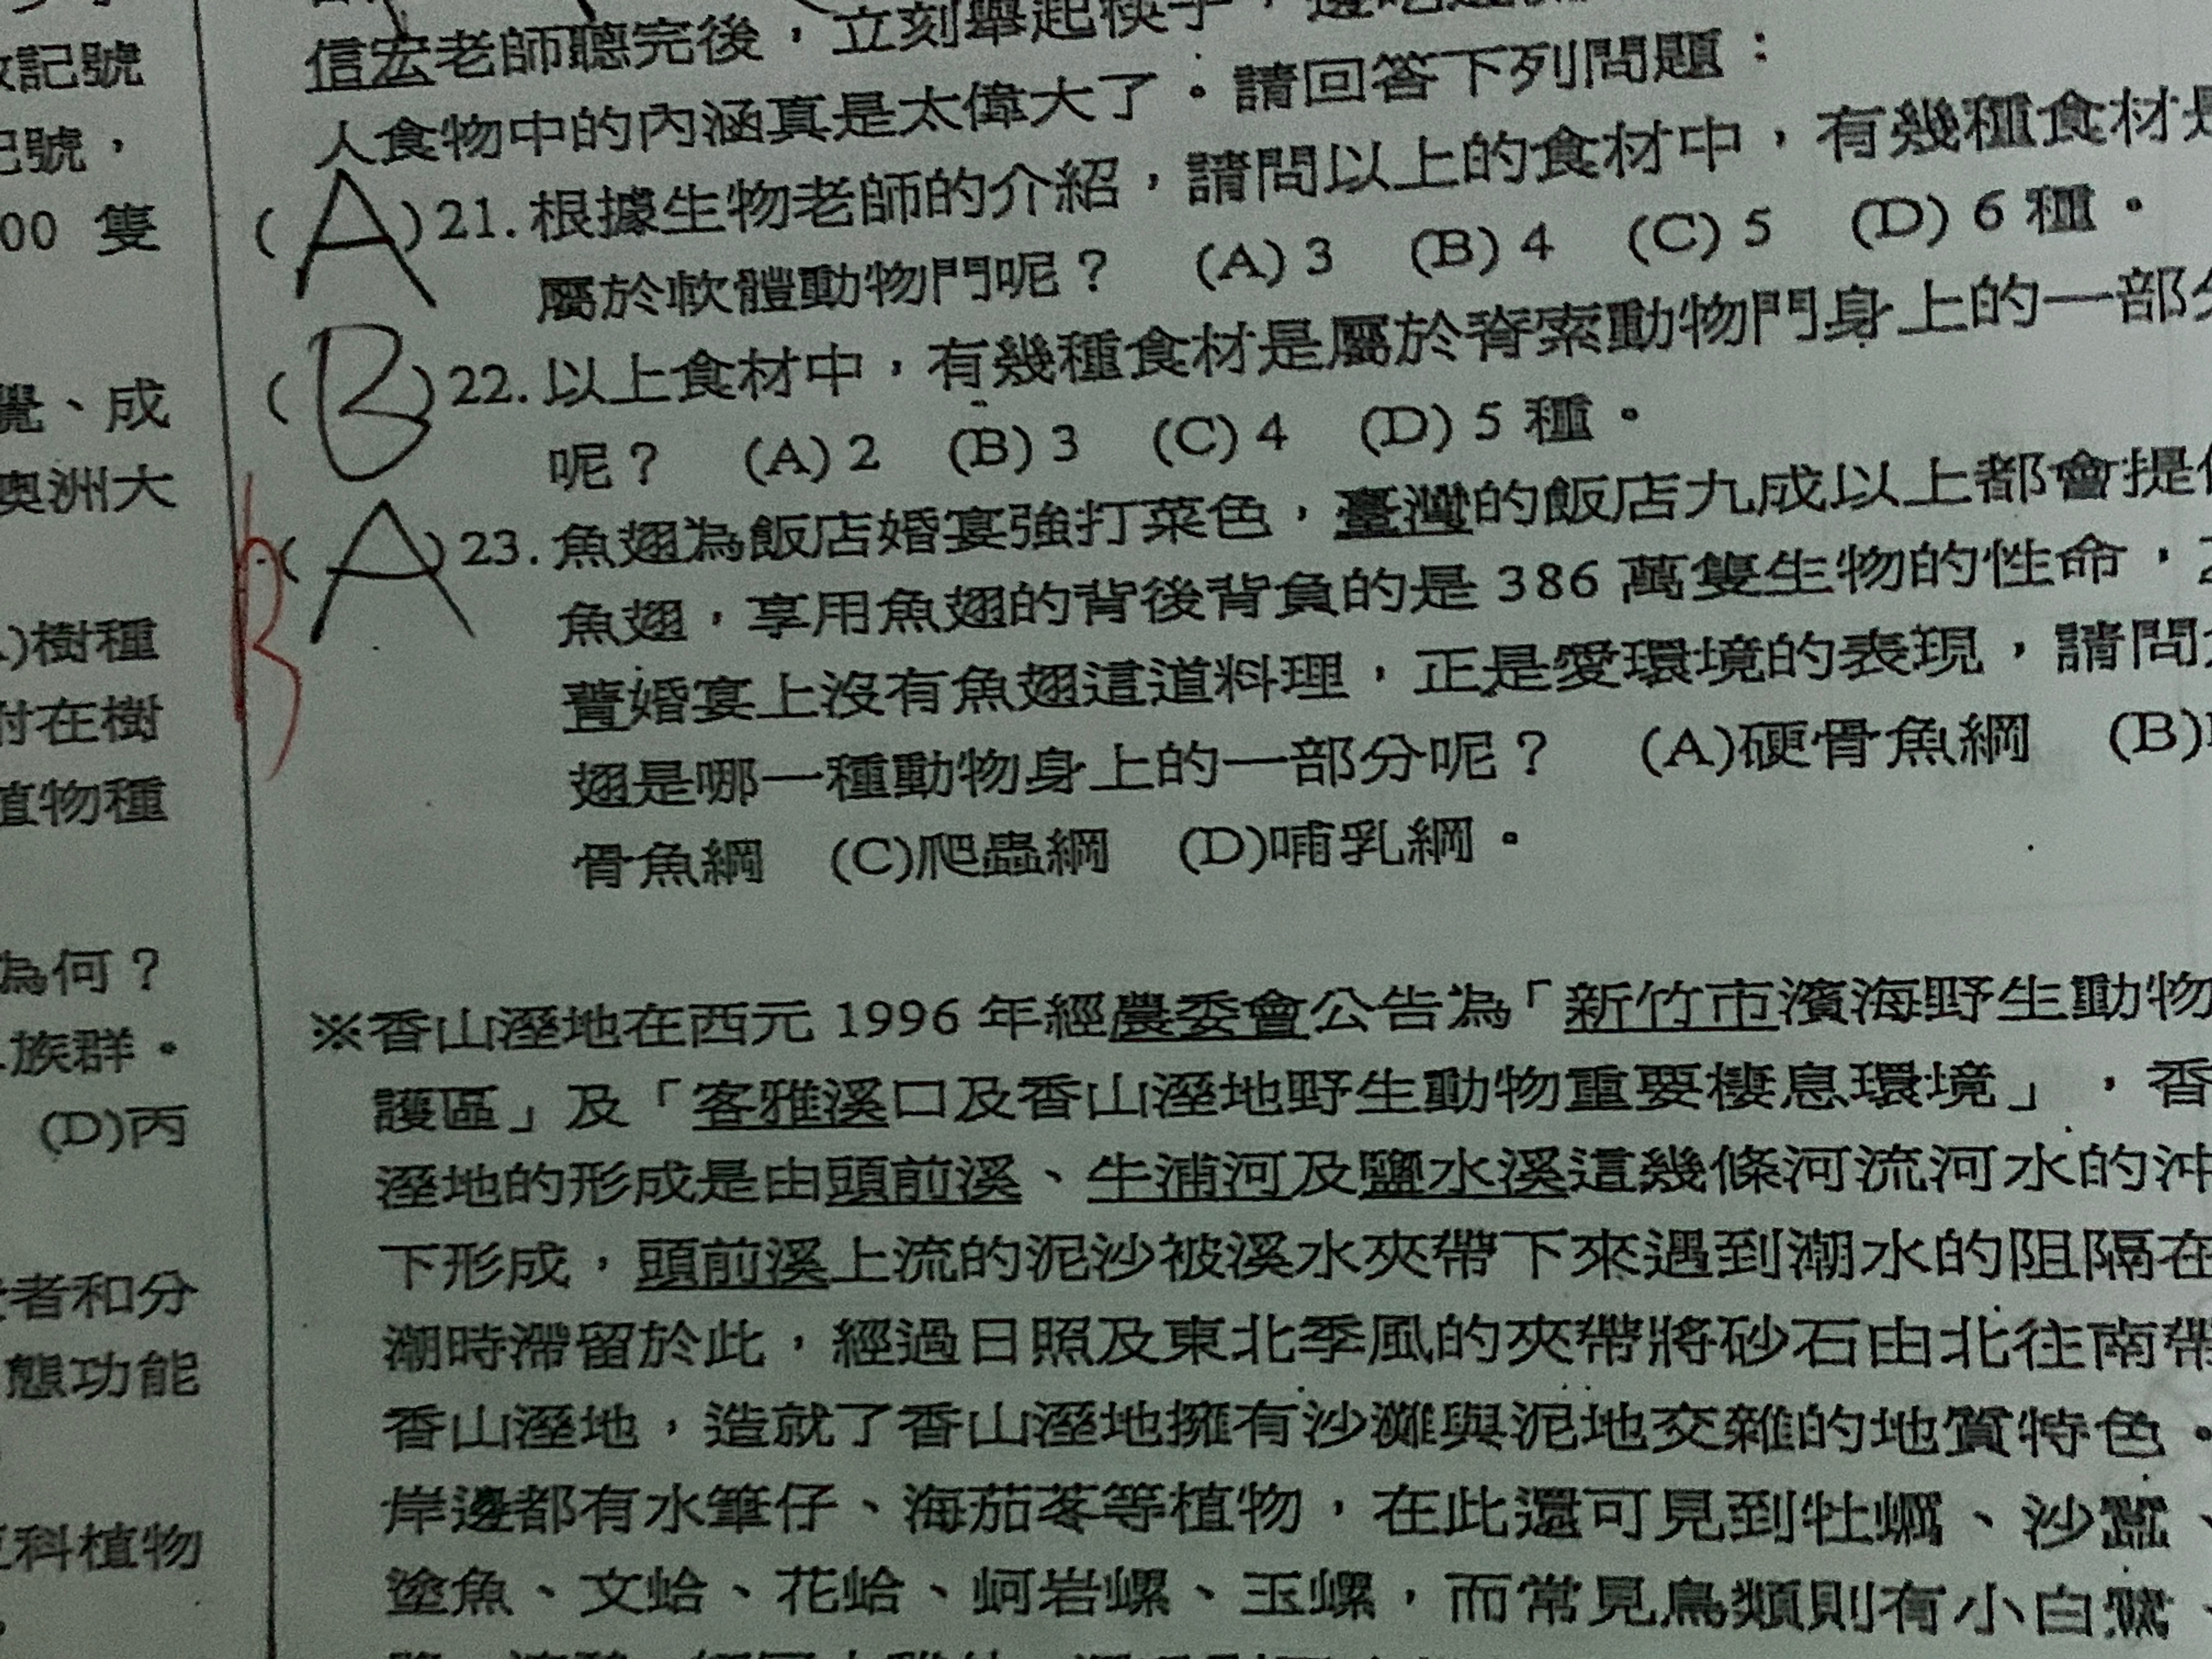 敂記號
記號，
00 隻
覺、成
奧洲大
)樹種
附在樹
植物種
為何？
族群。
(D)丙
者和分
態功能
科植物
信宏老師聽完後，立刻舉起筷子，邊吃邊
人食物中的內涵真是太偉大了。請回答下列問題：
(A)21.根據生物老師的介紹，請問以上的食材中，有幾種食材是
屬於軟體動物門呢？ (A)3 (B)4 (C)5 (D)6 種。
(B)22.以上食材中，有幾種食材是屬於脊索動物門身上的一部分
呢？ (A)2 (B)3 (C)4 (D)5 種。
B(A)23.魚翅為飯店婚宴強打菜色，臺灣的飯店九成以上都會提供
魚翅，享用魚翅的背後背負的是 386 萬隻生物的性命，
萱婚宴上沒有魚翅這道料理，正是愛環境的表現，請問
翅是哪一種動物身上的一部分呢？ (A)硬骨魚綱 (B)
骨魚綱 (C)爬蟲綱 (D)哺乳綱。
※香山溼地在西元 1996 年經農委會公告為「新竹市濱海野生動物
護區」及「客雅溪口及香山溼地野生動物重要棲息環境」，香
溼地的形成是由頭前溪、牛浦河及鹽水溪這幾條河流河水的沖
下形成，頭前溪上流的泥沙被溪水夾帶下來遇到潮水的阻隔在
潮時滯留於此，經過日照及東北季風的夾帶將砂石由北往南帶
香山溼地，造就了香山溼地擁有沙灘與泥地交雜的地質特色。
岸邊都有水筆仔、海茄苳等植物，在此還可見到牡蠣、沙蠶、
塗魚、文蛤、花蛤、蚵岩螺、玉螺，而常見鳥類則有小白鷺、